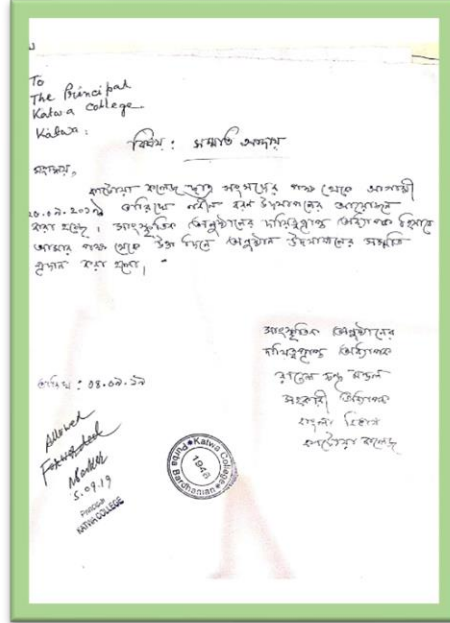 To
The Principal
Katwa College
Katwa.
বিষয় : সম্মতি প্রদান
মহাশয়,
কাটোয়া কলেজ ছাত্র সংসদের পক্ষ থেকে আগামী
তারিখে নবীন বরণ উদযাপনের আয়োজন
করা হচ্ছে। সাংস্কৃতিক অনুষ্ঠানের দায়িত্বপ্রাপ্ত অধ্যাপক হিসাবে
আমার পক্ষ থেকে উক্ত দিনে অনুষ্ঠান উদযাপনের সম্মতি
প্রদান করা হলো।
সাংস্কৃতিক অনুষ্ঠানের
দায়িত্বপ্রাপ্ত অধ্যাপক
চন্দ্র মন্ডল
সহকারী অধ্যাপক
বাংলা বিভাগ
কাটোয়া কলেজ
তারিখ : 04.09.19
Allowed
Forwarded
5.09.19
Principal
KATWA COLLEGE
Katwa College
1948
Purba Bardhaman